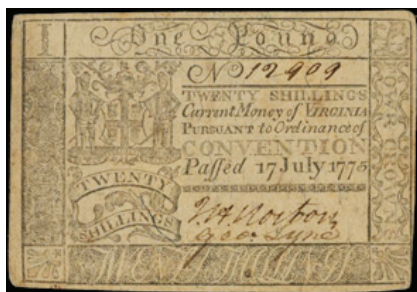 One Pound
No 12909
TWENTY SHILLINGS
Currant Money of VIRGINIA
PURSUANT to Ordinance of
CONVENTION
Passed 17 July 1775
TWENTY
SHILLINGS
FOUR CROWNS